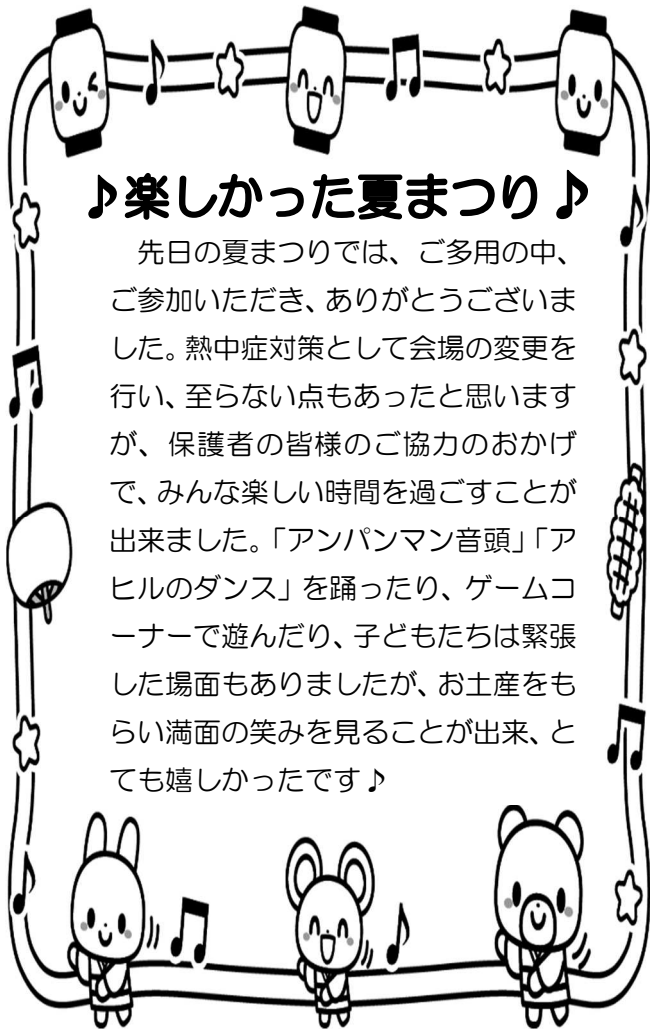 ♪楽しかった夏まつり♪
先日の夏まつりでは、ご多用の中、
ご参加いただき、ありがとうございま
した。熱中症対策として会場の変更を
行い、至らない点もあったと思います
が、保護者の皆様のご協力のおかげ
で、みんな楽しい時間を過ごすことが
出来ました。「アンパンマン音頭」「ア
ヒルのダンス」を踊ったり、ゲームコ
ーナーで遊んだり、子どもたちは緊張
した場面もありましたが、お土産をも
らい満面の笑みを見ることが出来、と
ても嬉しかったです♪